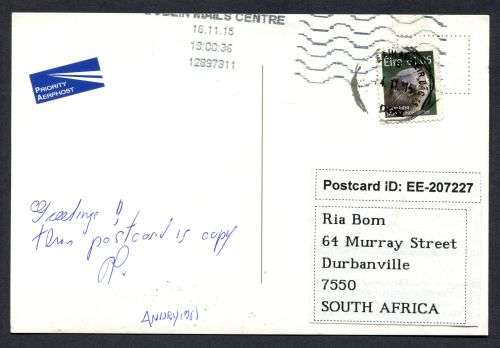 DUBLIN MAILS CENTRE
16.11.15
19:00:36
12897311
PRIORITY
AERPHOST
Éire
Postcard iD: EE-207227
Ria Bom
64 Murray Street
Durbanville
7550
SOUTH AFRICA
Greetings!
this postcard is copy